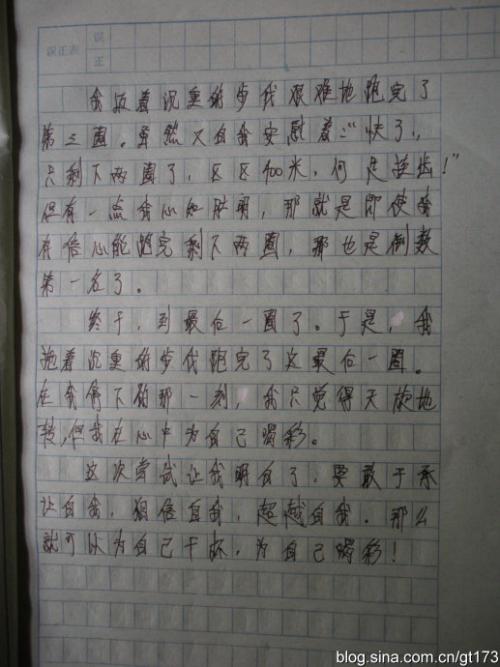 误正表
误
正
我迈着沉重的步伐艰难地跑完了
第三圈。虽然又自我安慰着:“快了,
只剩下两圈了,区区400米,何足挂齿!”
但有一点我心知肚明,那就是即使我
有信心能跑完剩下两圈,那也是倒数
第一名了。
终于,到最后一圈了。于是,我
拖着沉重的步伐跑完了这最后一圈。
在我停下的那一刻,我只觉得天旋地
转,但我在心中为自己喝彩。
这次尝试让我明白了,要敢于承
让自我,相信自我,超越自我。那么
就可以为自己干杯,为自己喝彩!
blog.sina.com.cn/gt173